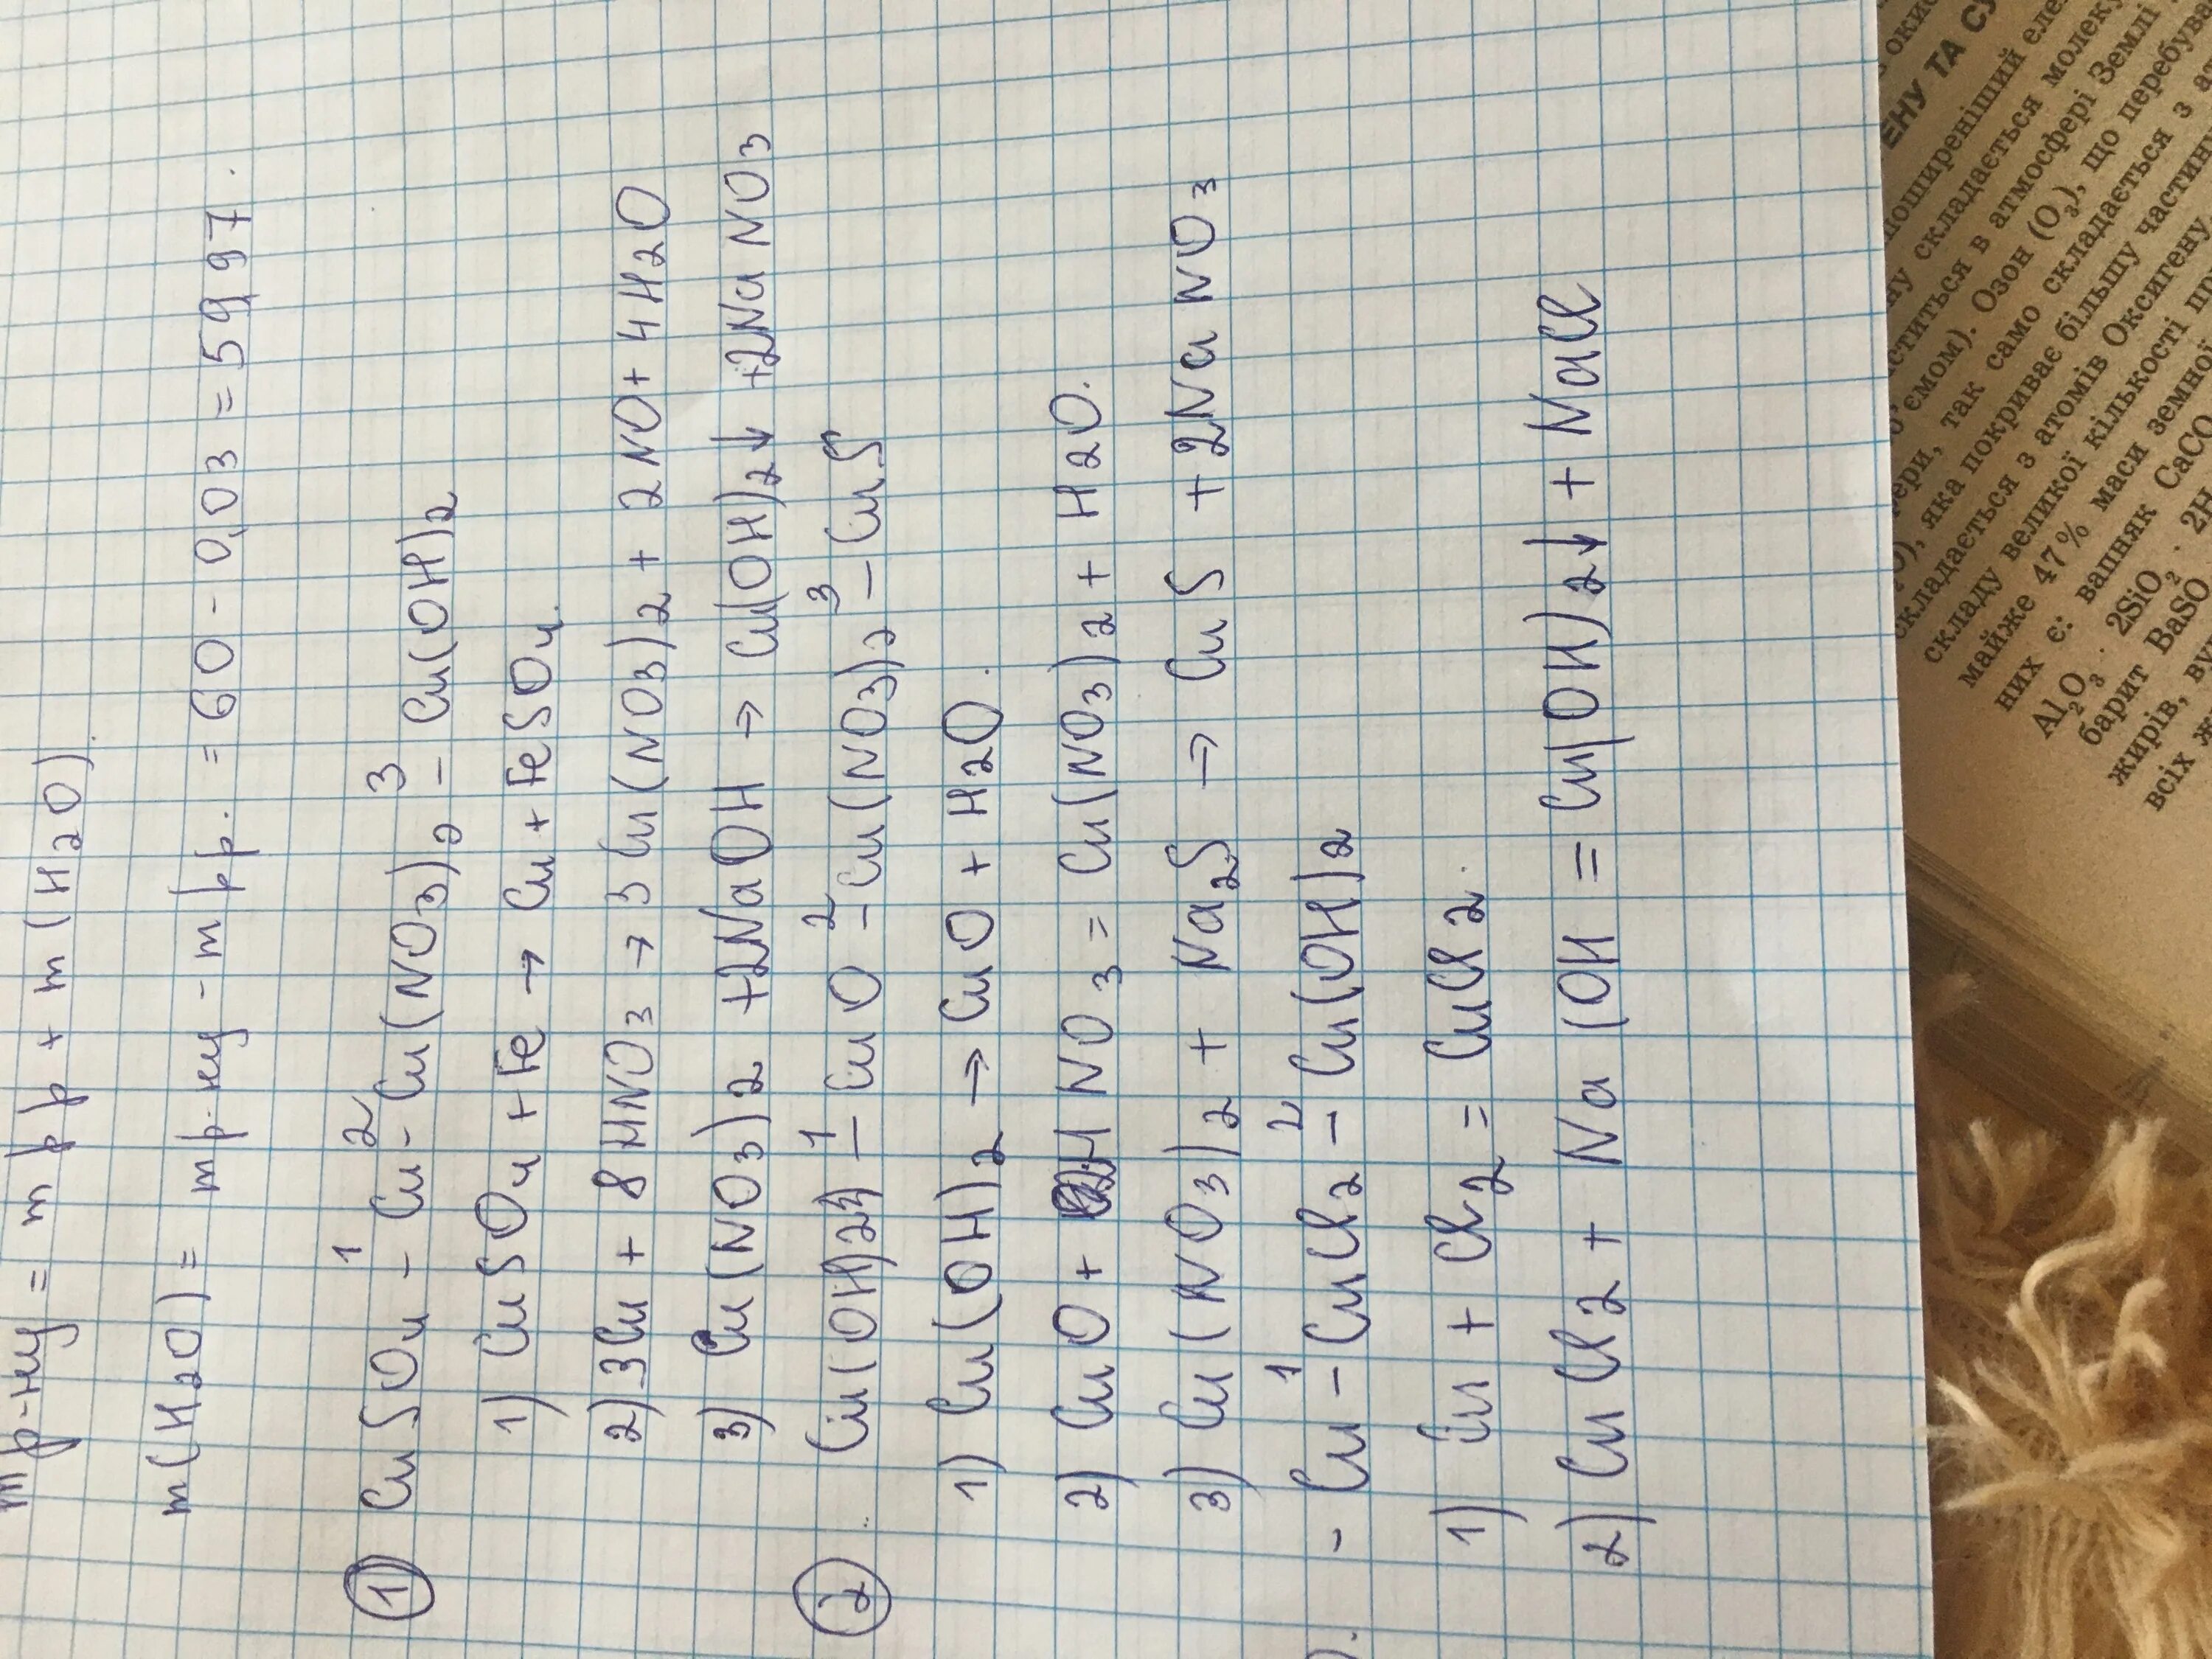 m р-ну = m р р + m (H2O).
m (H2O) = m р-ну - m р р. = 60 - 0,03 = 59,97.
① CuSO4 -¹ Cu -² Cu(NO3)2 -³ Cu(OH)2
1) CuSO4 + Fe → Cu + FeSO4.
2) 3Cu + 8HNO3 → 3Cu(NO3)2 + 2NO + 4H2O
3) Cu(NO3)2 + 2NaOH → Cu(OH)2↓ + 2NaNO3
② Cu(OH)2 -¹ CuO -² Cu(NO3)2 -³ CuS
1) Cu(OH)2 → CuO + H2O.
2) CuO + HNO3 = Cu(NO3)2 + H2O.
3) Cu(NO3)2 + Na2S → CuS + 2NaNO3
- Cu -¹ CuCl2 -² Cu(OH)2
1) Cu + Cl2 = CuCl2.
2) CuCl2 + Na(OH = Cu(OH)2↓ + NaCl
ЕНУ ТА
поширеніший
складається
в атмосфері Землі
ємом). Озон (O3), що
так само складається з
яка покриває більшу
складається з атомів Оксигену
складу великої кількості
майже 47 % маси земної
них є: вапняк CaCO
Al2O3 · 2SiO2 · 2H
барит BaSO
жирів,
всіх